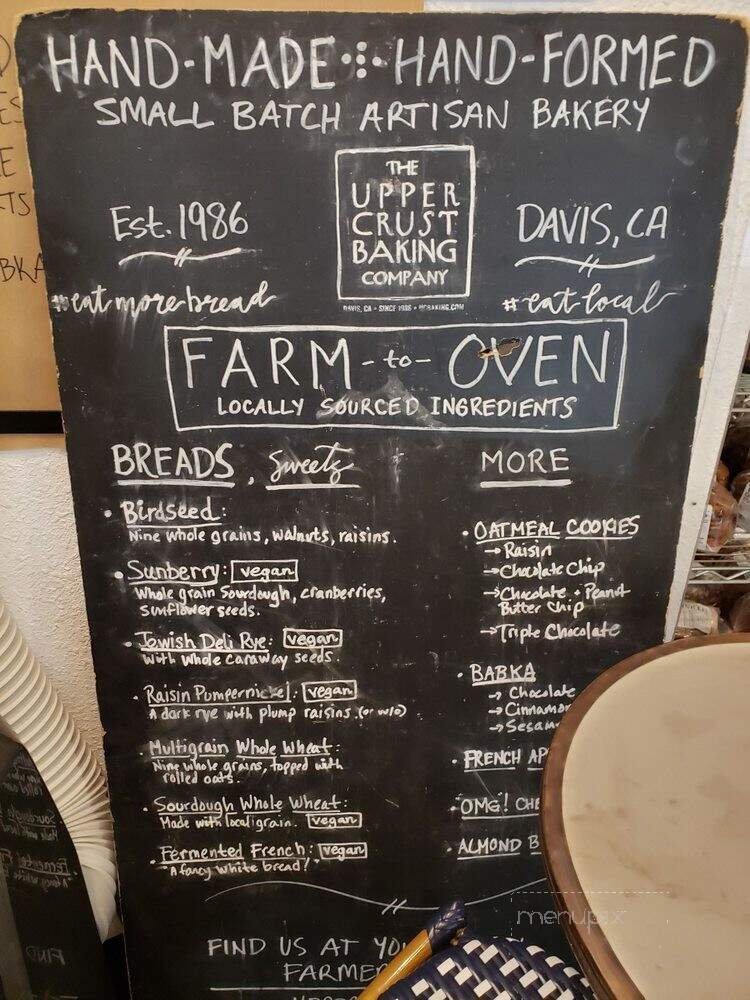 HAND-MADE HAND-FORMED
SMALL BATCH ARTISAN BAKERY
THE
UPPER
CRUST
BAKING
COMPANY
Est. 1986
DAVIS, CA
#eatmorebread
#eatlocal
DAVIS, CA • SINCE 1986 • UCBAKING.COM
FARM -to- OVEN
LOCALLY SOURCED INGREDIENTS
BREADS, Sweets
• Birdseed:
Nine whole grains, walnuts, raisins.
• Sunberry: vegan
Whole grain sourdough, cranberries,
sunflower seeds.
• Jewish Deli Rye: vegan
with whole caraway seeds.
• Raisin Pumpernickel: vegan
A dark rye with plump raisins (or w/o)
• Multigrain Whole Wheat:
Nine whole grains, topped with
rolled oats.
• Sourdough Whole Wheat:
Made with local grain. vegan
• Fermented French: vegan
"A fancy white bread!"
MORE
• OATMEAL COOKIES
→ Raisin
→ Chocolate Chip
→ Chocolate + Peanut
Butter Chip
→ Triple Chocolate
• BABKA
→ Chocolate
→ Cinnamon
→ Sesam
• FRENCH AP
• OMG! CHE
• ALMOND B
FIND US AT YO
FARMER
menupix